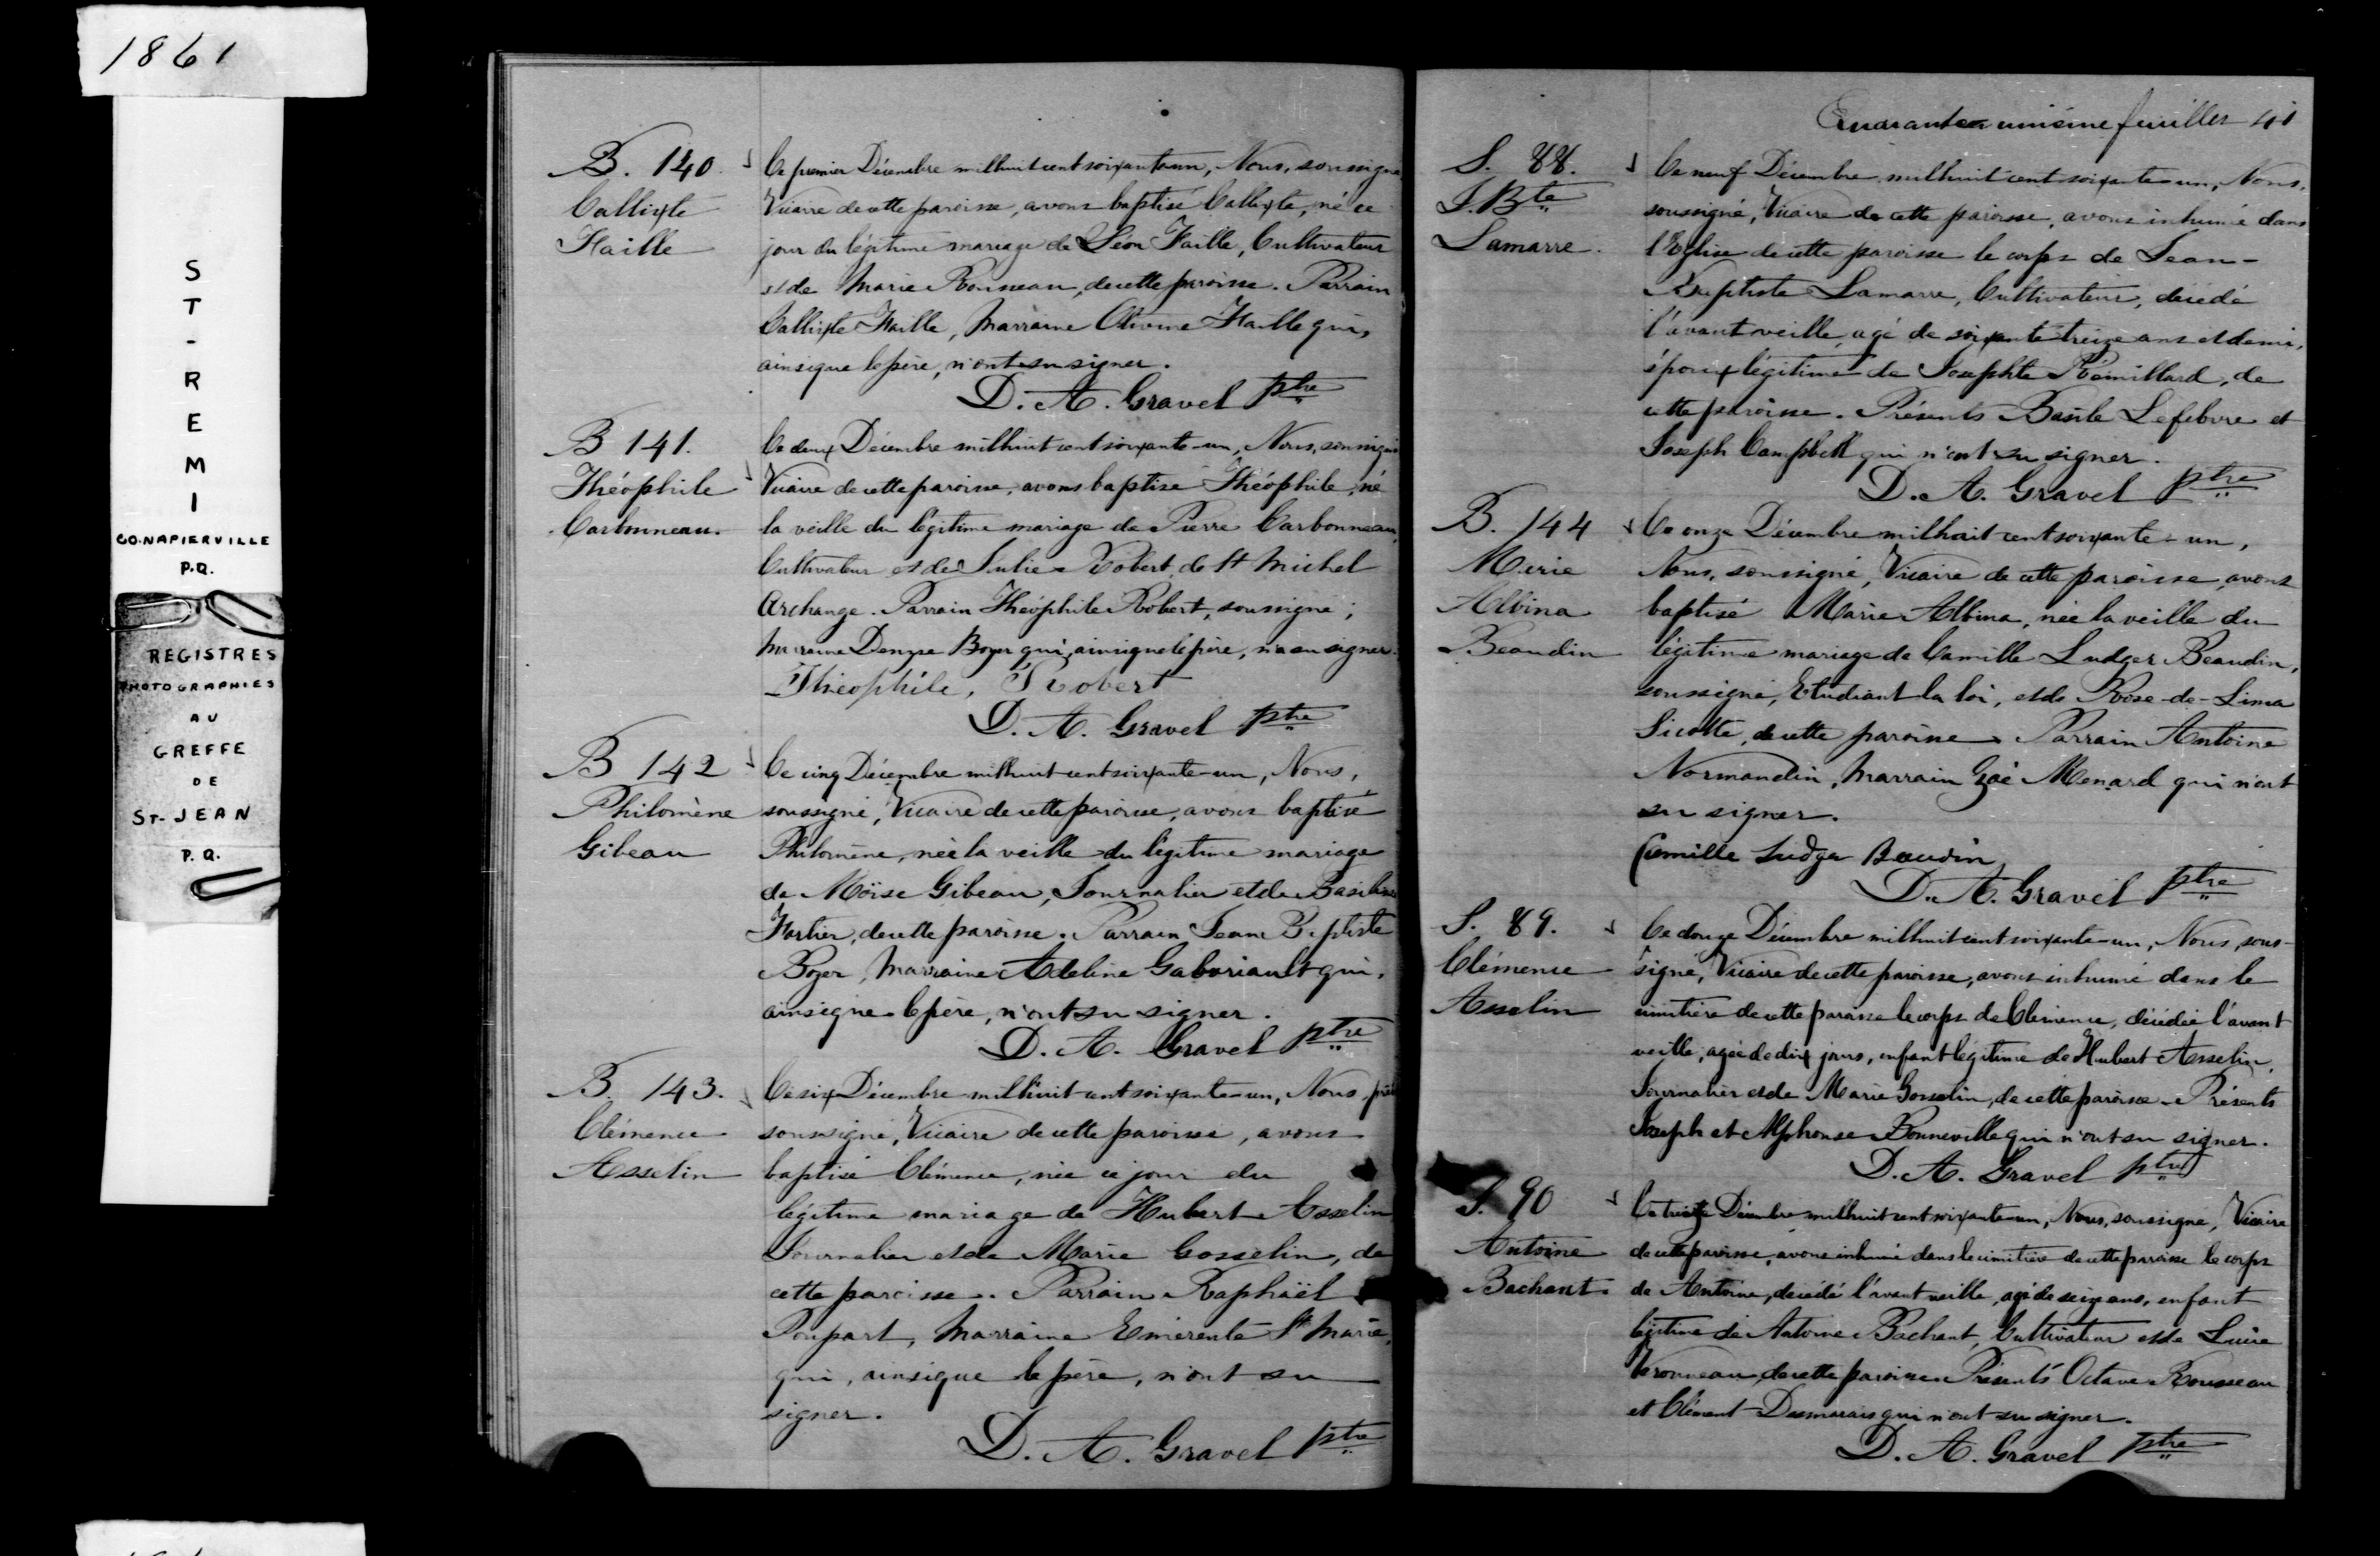 1861
ST-REMI
CO. NAPIERVILLE
P.Q.
REGISTRES
PHOTOGRAPHIES
AU
GREFFE
DE
ST-JEAN
P.Q.
B. 140.
Callixte
Faille
Ce premier Décembre milhuit cent soixante-un, Nous, soussigné
Vicaire de cette paroisse, avons baptisé Callixte, né ce
jour du légitime mariage de Léon Faille, Cultivateur
et de Marie Rousseau, de cette paroisse. Parrain
Callixte Faille, Marraine Olivine Faille qui,
ainsi que le père, n'ont su signer.
D. A. Gravel ptre
B 141.
Théophile
Carbonneau.
Ce deux Décembre milhuit cent soixante-un, Nous, soussigné
Vicaire de cette paroisse, avons baptisé Théophile, né
la veille du légitime mariage de Pierre Carbonneau,
Cultivateur et de Julie Robert de St Michel
Archange. Parrain Théophile Robert, soussigné;
Marraine Denyse Boyer qui, ainsi que le père, n'a su signer.
Théophile, Robert
D. A. Gravel ptre
B 142
Philomène
Gibeau
Ce cinq Décembre milhuit cent soixante-un, Nous,
soussigné, Vicaire de cette paroisse, avons baptisé
Philomène, née la veille du légitime mariage
de Moïse Gibeau, Journalier et de Basilisse
Fortier, de cette paroisse. Parrain Jean Baptiste
Boyer, Marraine Adeline Gaboriault qui,
ainsi que le père, n'ont su signer.
D. A. Gravel ptre
B. 143.
Clémence
Asselin
Ce six Décembre milhuit cent soixante-un, Nous,
soussigné, Vicaire de cette paroisse, avons
baptisé Clémence, née ce jour du
légitime mariage de Hubert Asselin
Journalier et de Marie Gosselin, de
cette paroisse. Parrain Raphaël
Poupart, Marraine Emérente St Marie,
qui, ainsi que le père, n'ont su
signer.
D. A. Gravel ptre
Quarante unième feuillet 41
S. 88.
J. Bte
Lamarre.
Ce neuf Décembre milhuit cent soixante-un, Nous,
soussigné, Vicaire de cette paroisse, avons inhumé dans
l'Eglise de cette paroisse le corps de Jean-
Baptiste Lamarre, Cultivateur, décédé
l'avant veille, agé de soixante treize ans et demi,
époux légitime de Josephte Rémillard, de
cette paroisse. Présents Basile Lefebvre et
Joseph Campbell qui n'ont su signer.
D. A. Gravel ptre
B. 144
Marie
Albina
Beaudin
Ce onze Décembre milhuit cent soixante-un,
Nous, soussigné, Vicaire de cette paroisse, avons
baptisé Marie Albina, née la veille du
légitime mariage de Camille Ludger Beaudin,
soussigné, Etudiant la loi, et de Rose-de-Lima
Sicotte, de cette paroisse. Parrain Antoine
Normandin, Marrain Zoé Menard qui n'ont
su signer.
Camille Ludger Beaudin
D. A. Gravel ptre
S. 89.
Clémence
Asselin
Ce douze Décembre milhuit cent soixante-un, Nous, sous-
signé, Vicaire de cette paroisse, avons inhumé dans le
cimitière de cette paroisse le corps de Clémence, décédée l'avant
veille, agée de dix jours, enfant légitime de Hubert Asselin,
Journalier et de Marie Gosselin, de cette paroisse. Présents
Joseph et Alphonse Bonneville qui n'ont su signer.
D. A. Gravel ptre
S. 90
Antoine
Bachant.
Ce treize Décembre milhuit cent soixante-un, Nous, soussigné, Vicaire
de cette paroisse, avons inhumé dans le cimitière de cette paroisse le corps
de Antoine, décédé l'avant veille, agé de seize ans, enfant
légitime de Antoine Bachant, Cultivateur et de Lucie
Veronneau, de cette paroisse. Présents Octave Rousseau
et Clément Desmarais qui n'ont su signer.
D. A. Gravel ptre